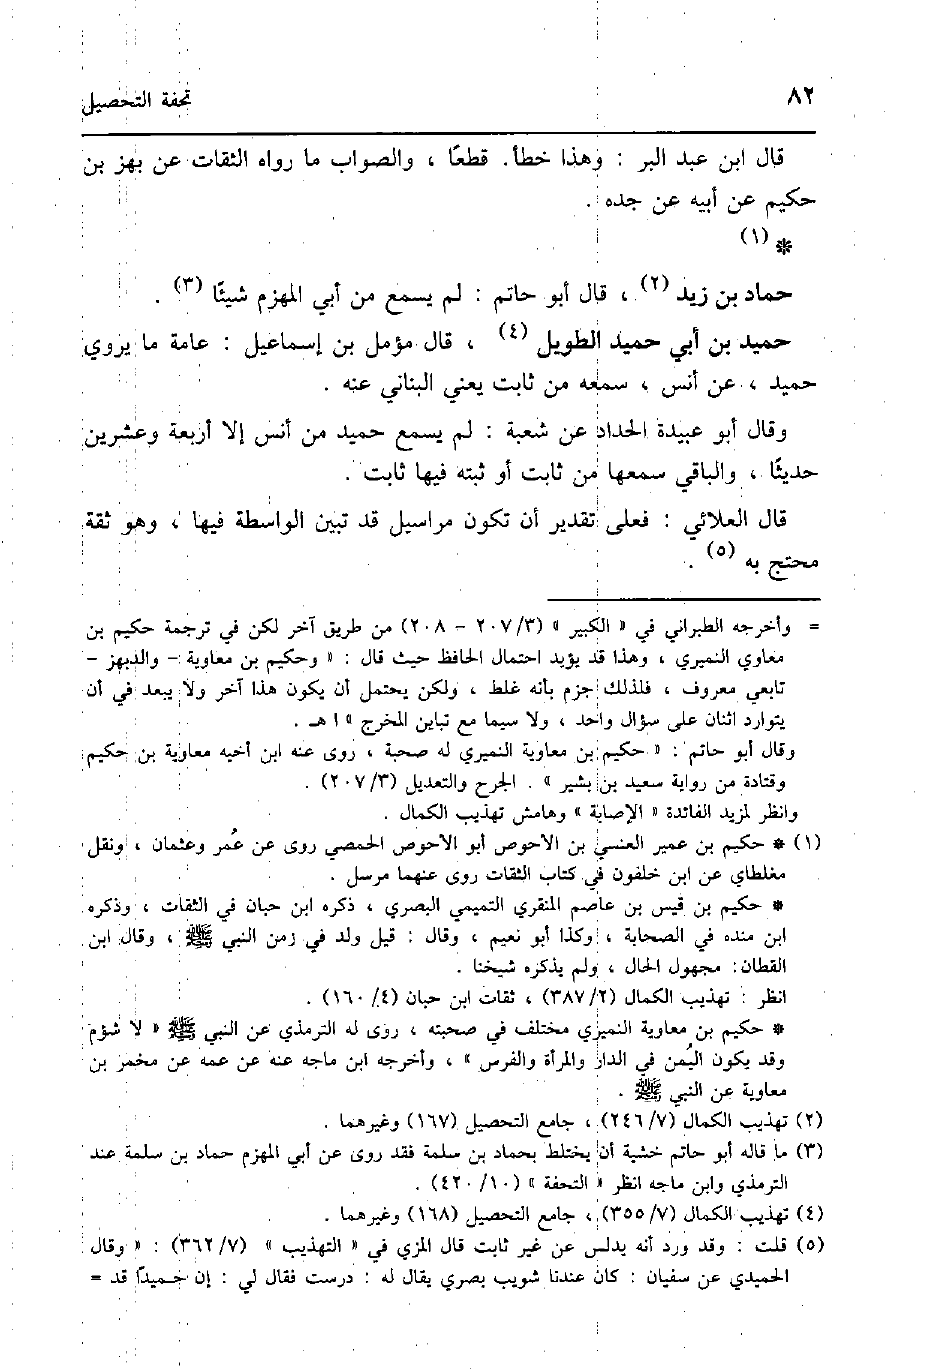 ٨٢
تحفة التحصيل
قال ابن عبد البر : وهذا خطأ. قطعًا ، والصواب ما رواه الثقات عن بهز بن
حكيم عن أبيه عن جده .
* (١)
حماد بن زيد (٢) ، قال أبو حاتم : لم يسمع من أبي المهزم شيئًا (٣) .
حميد بن أبي حميد الطويل (٤) ، قال مؤمل بن إسماعيل : عامة ما يروي
حميد ، عن أنس ، سمعه من ثابت يعني البناني عنه .
وقال أبو عبيدة الحداد عن شعبة : لم يسمع حميد من أنس إلا أربعة وعشرين
حديثًا ، والباقي سمعها من ثابت أو ثبته فيها ثابت .
قال العلائي : فعلى تقدير أن تكون مراسيل قد تبين الواسطة فيها ، وهو ثقة
محتج به (٥) .
= وأخرجه الطبراني في « الكبير » (٢٠٧/٣ – ٢٠٨) من طريق آخر لكن في ترجمة حكيم بن
معاوي النميري ، وهذا قد يؤيد احتمال الحافظ حيث قال : « وحكيم بن معاوية – والدبهز –
تابعي معروف ، فلذلك جزم بأنه غلط ، ولكن يحتمل أن يكون هذا آخر ولا يبعد في أن
يتوارد اثنان على سؤال واحد ، ولا سيما مع تباين المخرج » ا هـ .
وقال أبو حاتم : « حكيم بن معاوية النميري له صحبة ، روى عنه ابن أخيه معاوية بن حكيم
وقتادة من رواية سعيد بن بشير » . الجرح والتعديل (٢٠٧/٣) .
وانظر لمزيد الفائدة « الإصابة » وهامش تهذيب الكمال .
(١) * حكيم بن عمير العنسي بن الاحوص أبو الاحوص الحمصي روى عن عُمر وعثمان ، ونقل
مغلطاي عن ابن خلفون في كتاب الثقات روى عنهما مرسل .
* حكيم بن قيس بن عاصم المنقري التميمي البصري ، ذكره ابن حبان في الثقات ، وذكره
ابن منده في الصحابة ، وكذا أبو نعيم ، وقال : قيل ولد في زمن النبي ﷺ ، وقال ابن
القطان: مجهول الحال ، ولم يذكره شيخنا .
انظر : تهذيب الكمال (٣٨٧/٢) ، ثقات ابن حبان (١٦٠/٤) .
* حكيم بن معاوية النميري مختلف في صحبته ، روى له الترمذي عن النبي ﷺ « لا شؤم
وقد يكون اليُمن في الدار والمرأة والفرس » ، وأخرجه ابن ماجه عنه عن عمه عن مخمر بن
معاوية عن النبي ﷺ .
(٢) تهذيب الكمال (٢٤٦/٧) ، جامع التحصيل (١٦٧) وغيرهما .
(٣) ما قاله أبو حاتم خشية أن يختلط بحماد بن سلمة فقد روى عن أبي المهزم حماد بن سلمة عند
الترمذي وابن ماجه انظر « التحفة » (٤٢٠/١٠) .
(٤) تهذيب الكمال (٣٥٥/٧) ، جامع التحصيل (١٦٨) وغيرهما .
(٥) قلت : وقد ورد أنه يدلس عن غير ثابت قال المزي في « التهذيب » (٣٦٢/٧) : « وقال
الحميدي عن سفيان : كان عندنا شويب بصري يقال له : درست فقال لي : إن حميدًا قد =